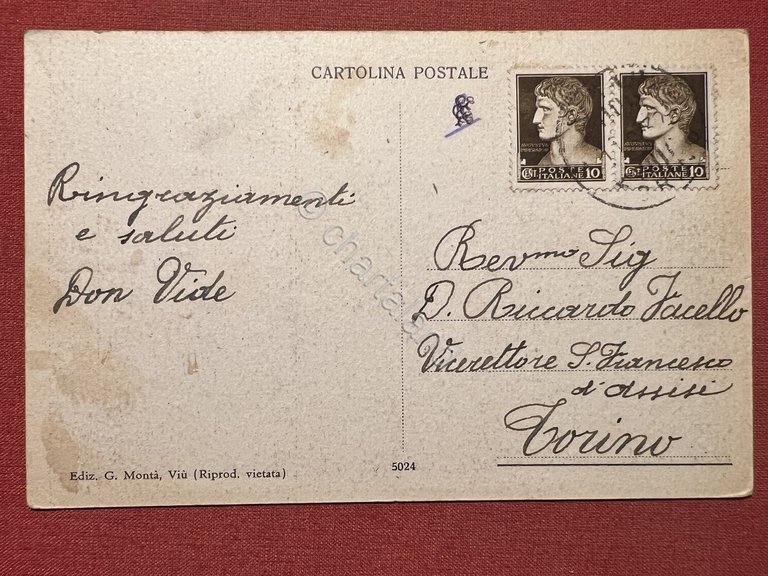 CARTOLINA POSTALE
AUGUSTVS
IMPERATOR
CENT. POSTE ITALIANE 10
AUGUSTVS
IMPERATOR
CENT. POSTE ITALIANE 10
Ringraziamenti
e saluti
Don Vide
Revmo Sig
D. Riccardo Vacello
Vicerettore S. Francesco
d'Assisi
Torino
Ediz. G. Montà, Viù (Riprod. vietata)
5024